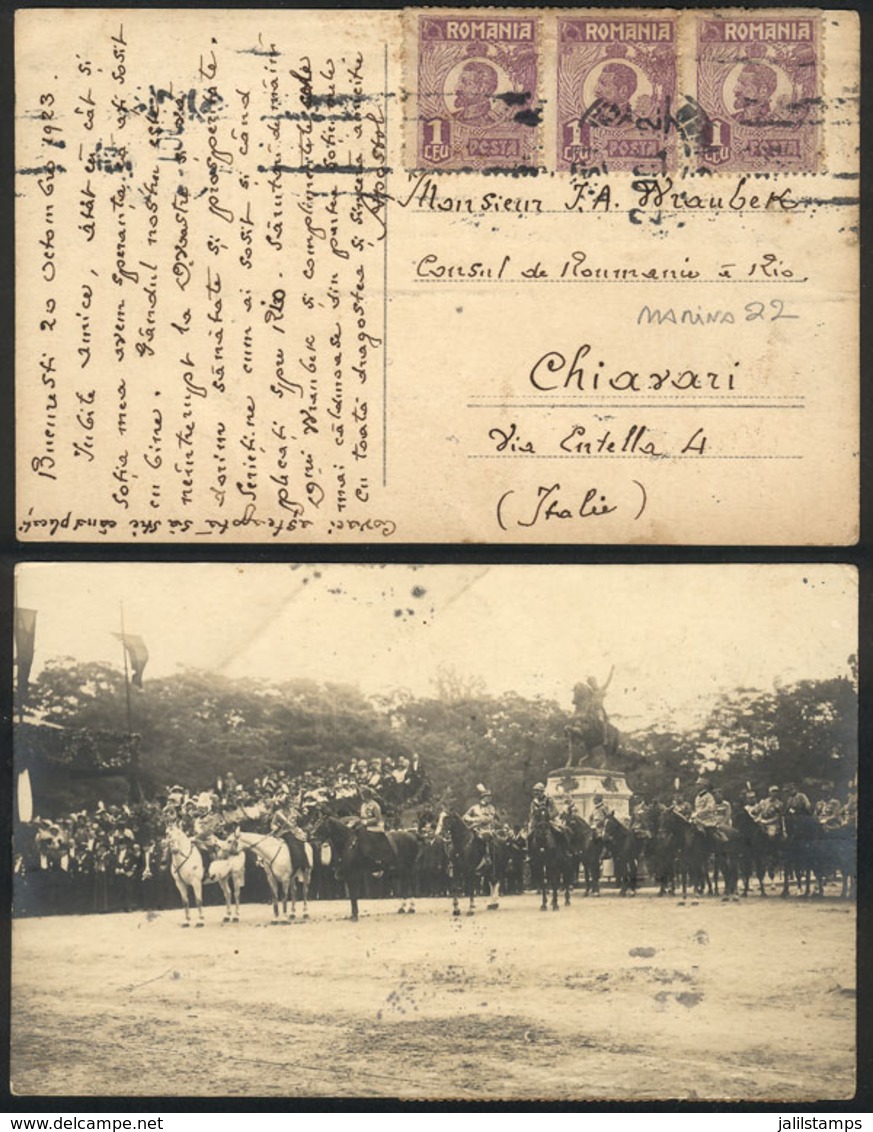 ROMANIA ROMANIA ROMANIA
1 LEU POSTA 1 LEU POSTA 1 LEU POSTA
Bucuresti 20 Octombrie 1923.
Iubite amice, atât eu cât și
soția mea avem speranța că ați sosit
cu bine. Gândul nostru este
neîntrerupt la Dvoastre și vă
dorim sănătate și prosperitate.
Scrieți-ne cum ai sosit și când
plecați spre Rio. Sărutări de mâini
Dnei Wraubek și complimentele cele
mai călduroase din partea soției mele
cu toată dragostea și sincera amiciție
Apostol
așteaptă să știe când plecați
Monsieur J. A. Wraubek
Consul de Roumanie à Rio
MARINA 22
Chiavari
Via Entella 4
(Italie)
jalilstamps